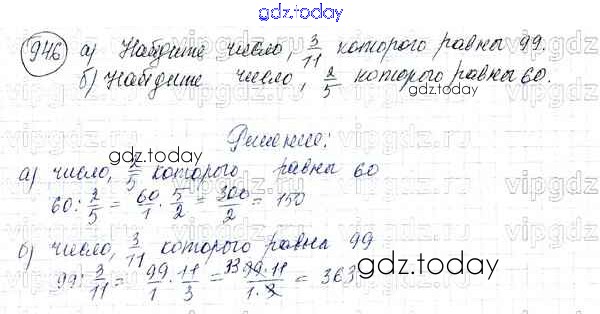 gdz.today
946 а) Найдите число, 3/11 которого равны 99.
б) Найдите число, 2/5 которого равны 60.
gdz.today
Решение:
gdz.today
а) число, 2/5 которого равны 60
60 : 2/5 = 60/1 · 5/2 = 300/2 = 150
б) число, 3/11 которого равна 99
99 : 3/11 = 99/1 · 11/3 = 33 99·11/1·3 = 363
gdz.today